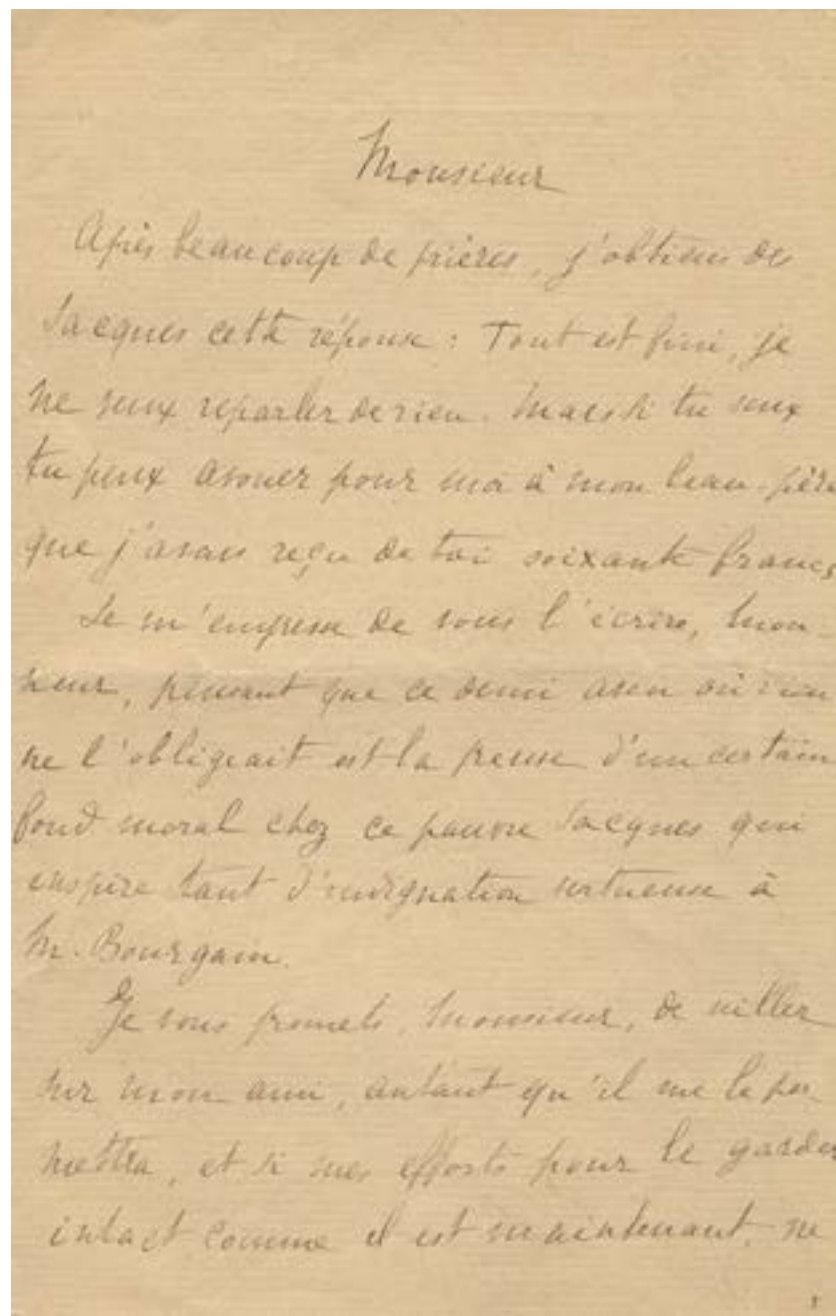 Monsieur
Après beaucoup de prières, j'obtiens de
Jacques cette réponse : Tout est fini, je
ne veux reparler de rien. Mais si tu veux
tu peux avouer pour moi à mon beau-père
que j'avais reçu de toi soixante francs
Je m'empresse de vous l'écrire, Mon-
sieur, pensant que ce demi aveu où rien
ne l'obligeait est la preuve d'un certain
fond moral chez ce pauvre Jacques qui
inspire tant d'indignation vertueuse à
M. Bourgain.
Je vous promets, Monsieur, de veiller
sur mon ami, autant qu'il me le per-
mettra, et si mes efforts pour le garder
intact comme il est maintenant, ne